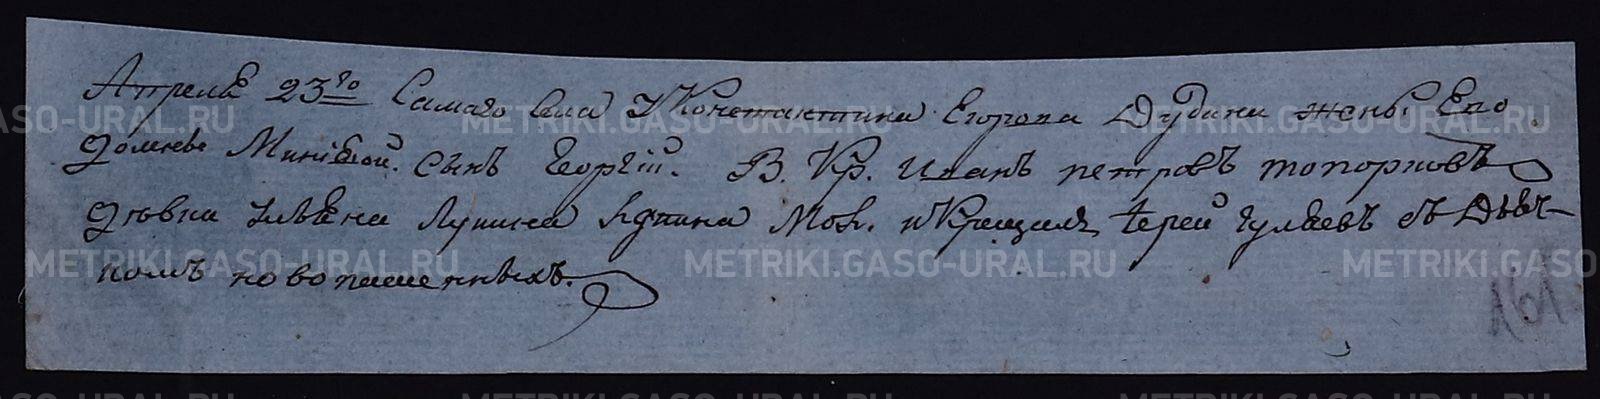 Апреля 23го Самаго села У Константина Егорова Дудина жены Его
Домны Минѣевой. сынъ Георгiй. В. Кр. Иванъ петровъ топорковъ
дѣвка Ульяна Лукина Мол. и Крещалъ Iерей гуляевъ съ Дьяч-
комъ новопашенныхъ.
161
METRIKI.GASO-URAL.RU